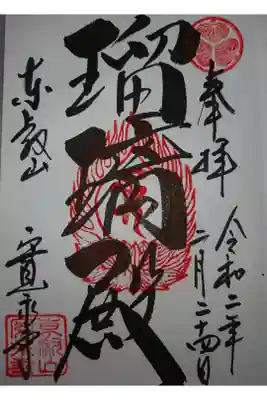 奉拝
令和二年
二月二十四日
瑠璃殿
东叡山
寛永寺